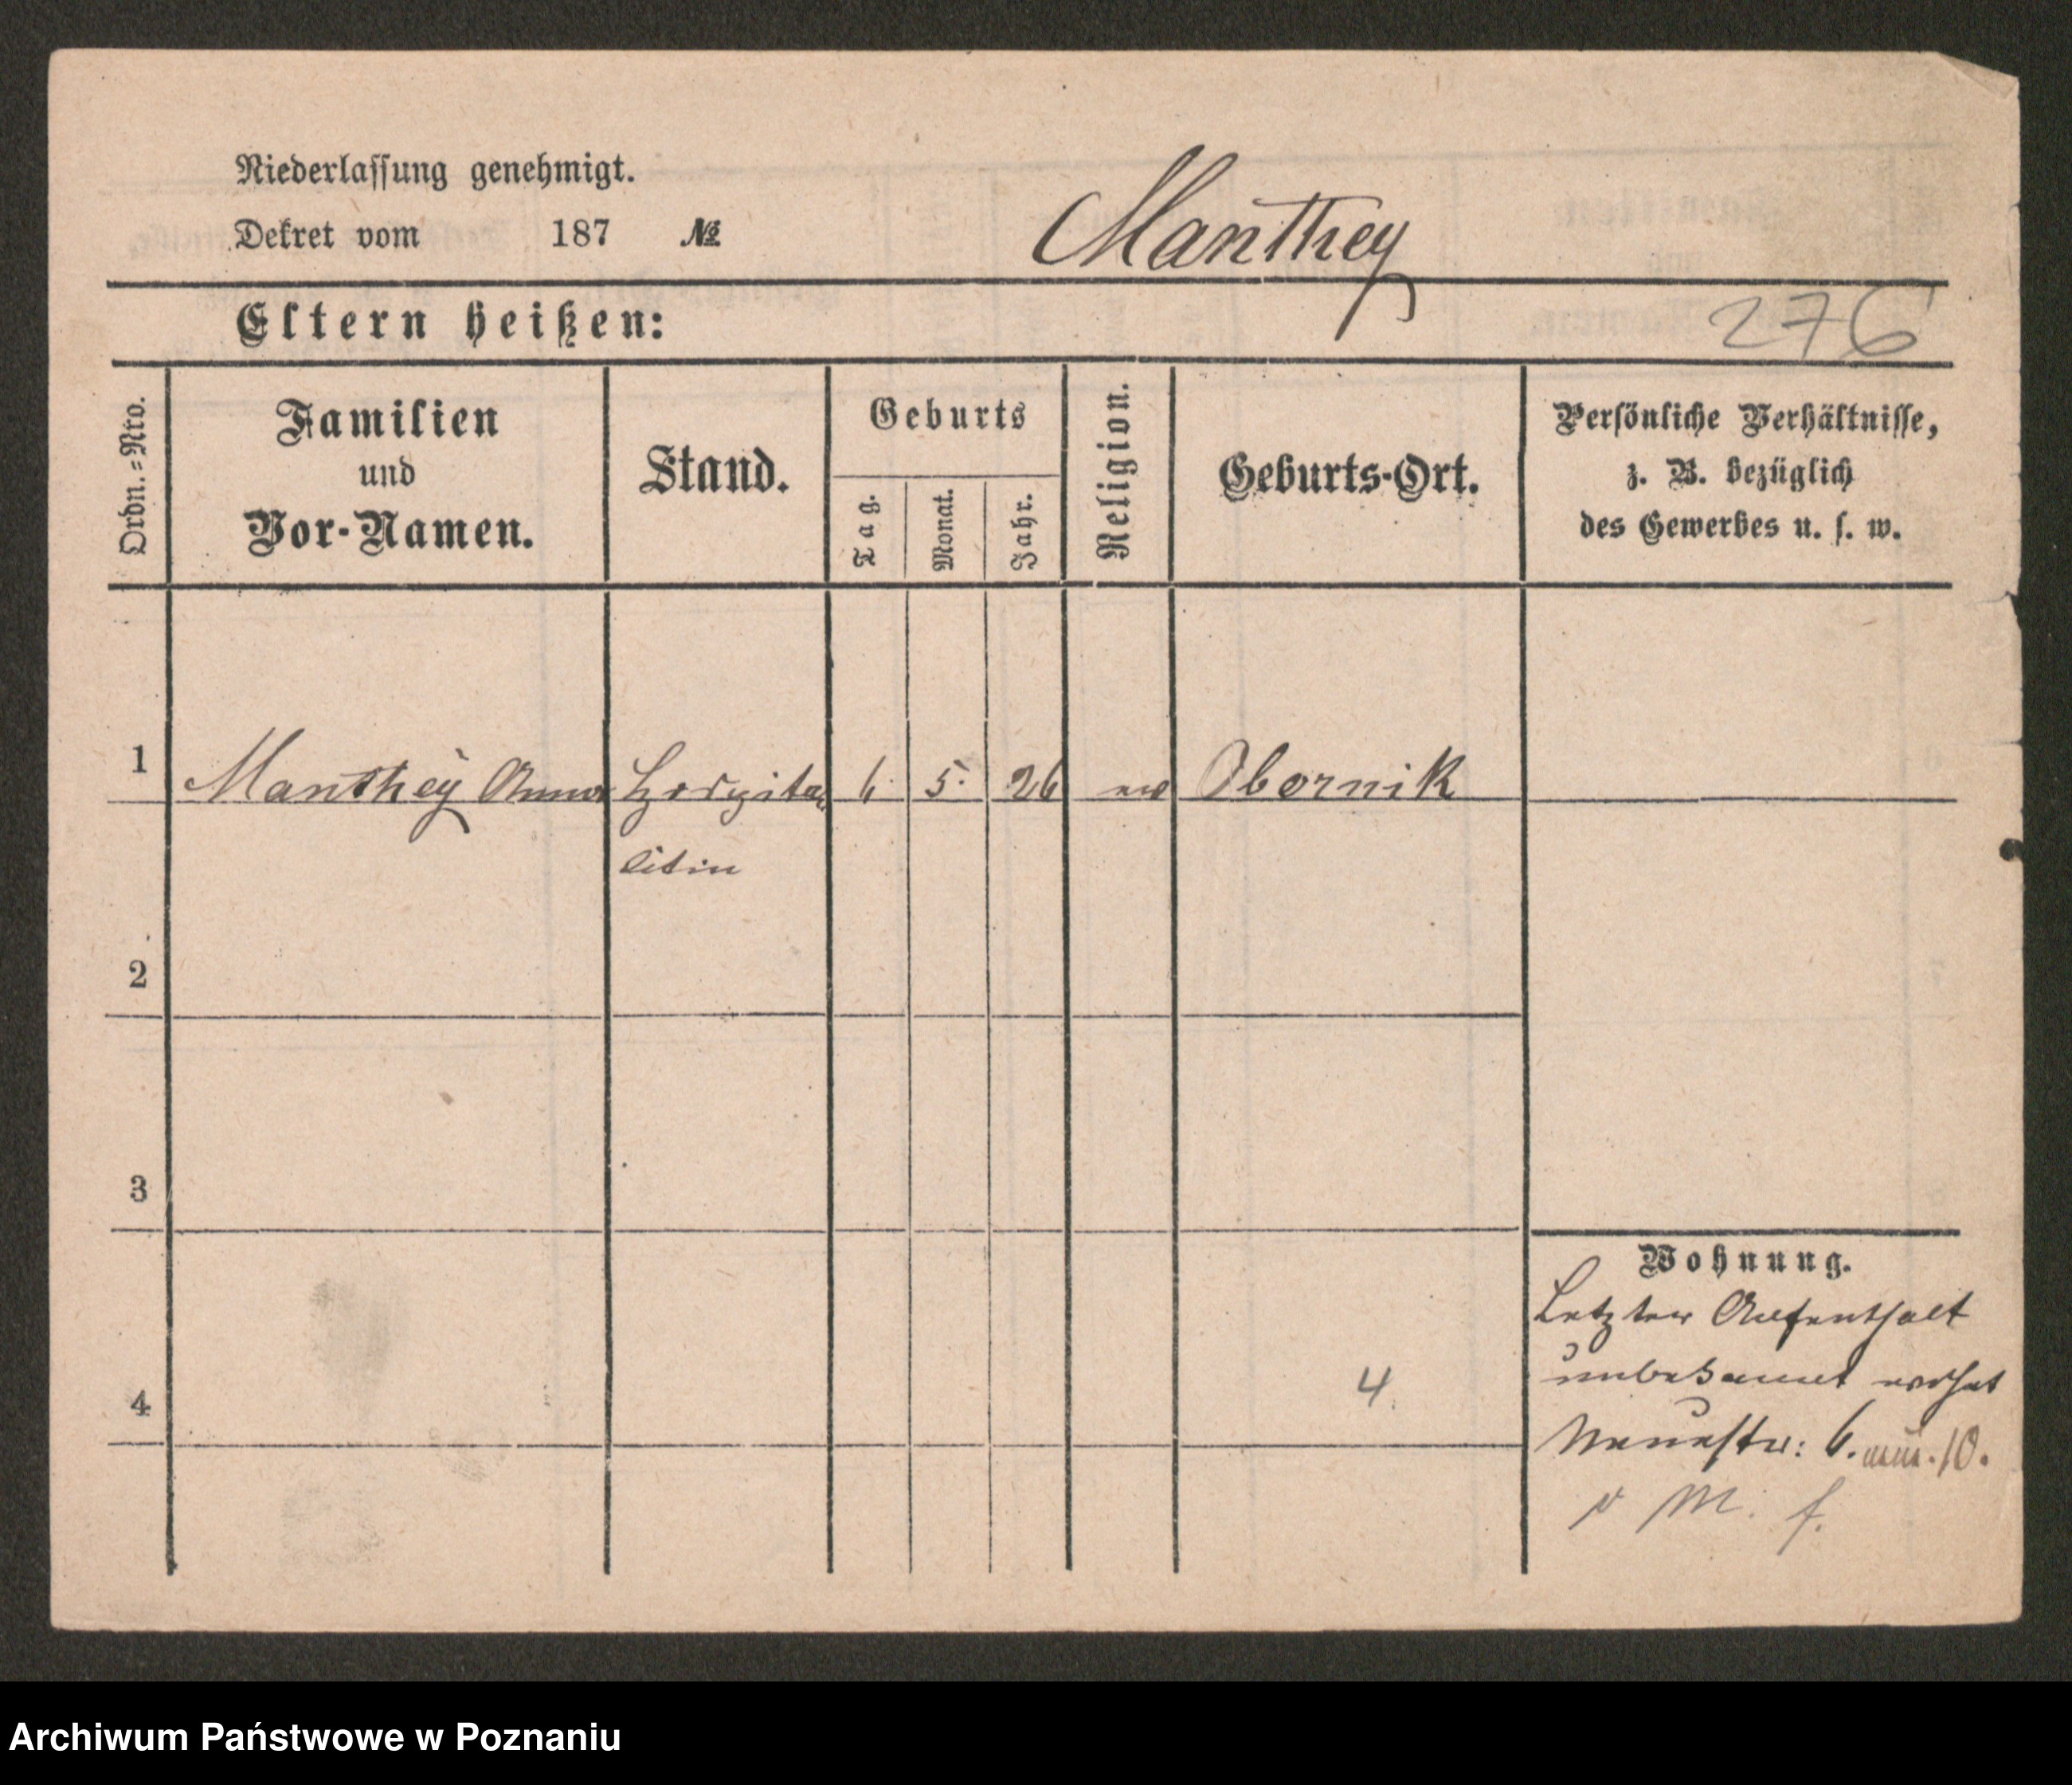 Niederlassung genehmigt.
Dekret vom 187 №
Manthey
Eltern heißen:
276
Ordn.=Nro.
Familien
und
Vor-Namen.
Stand.
Geburts
Tag.
Monat.
Jahr.
Religion.
Geburts-Ort.
Persönliche Verhältnisse,
z. B. bezüglich
des Gewerbes u. s. w.
1
Manthey Anna
Hospita
litin
6. 5. 26
ev
Obornik
2
3
4
4
Wohnung.
Letzter Aufenthalt
unbekannt wohnt
Neuestr: 6. 10.
v M. f.
Archiwum Państwowe w Poznaniu